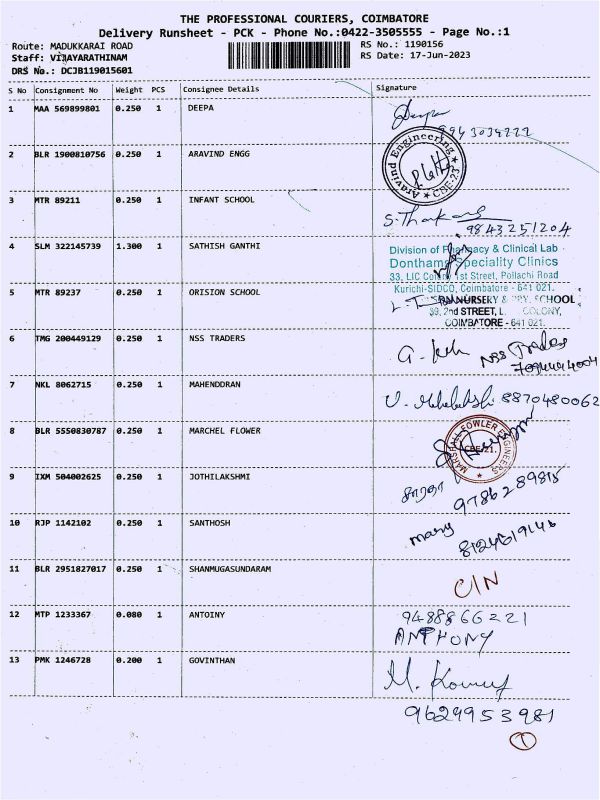 THE PROFESSIONAL COURIERS, COIMBATORE
Delivery Runsheet - PCK - Phone No.:0422-3505555 - Page No.:1
Route: MADUKKARAI ROAD
RS No.: 1190156
Staff: VIJAYARATHINAM
RS Date: 17-Jun-2023
DRS No.: DCJB119015601
S No Consignment No Weight PCS Consignee Details Signature
1 MAA 569899801 0.250 1 DEEPA
9943034222
2 BLR 1900810756 0.250 1 ARAVIND ENGG
Aravind Engineering
CBE-23
3 MTR 89211 0.250 1 INFANT SCHOOL
9843251204
4 SLM 322145739 1.300 1 SATHISH GANTHI
Division of Pharmacy & Clinical Lab
Donthams Speciality Clinics
33, LIC Colony 1st Street, Pollachi Road
Kurichi-SIDCO, Coimbatore - 641 021.
5 MTR 89237 0.250 1 ORISION SCHOOL
NURSERY & PRY. SCHOOL
39, 2nd STREET, L. COLONY,
COIMBATORE - 641 021.
6 TMG 200449129 0.250 1 NSS TRADERS
NSS Trades
7 NKL 8062715 0.250 1 MAHENDDRAN
8870480062
8 BLR 5550830787 0.250 1 MARCHEL FLOWER
MARSHALL FOWLER ENGINEERS
CBE-21.
9 IXM 504002625 0.250 1 JOTHILAKSHMI
சாரதா
10 RJP 1142102 0.250 1 SANTHOSH
mary
11 BLR 2951827017 0.250 1 SHANMUGASUNDARAM
C/N
12 MTP 1233367 0.080 1 ANTOINY
9488866221
ANTHONY
13 PMK 1246728 0.200 1 GOVINTHAN
9629953981
1